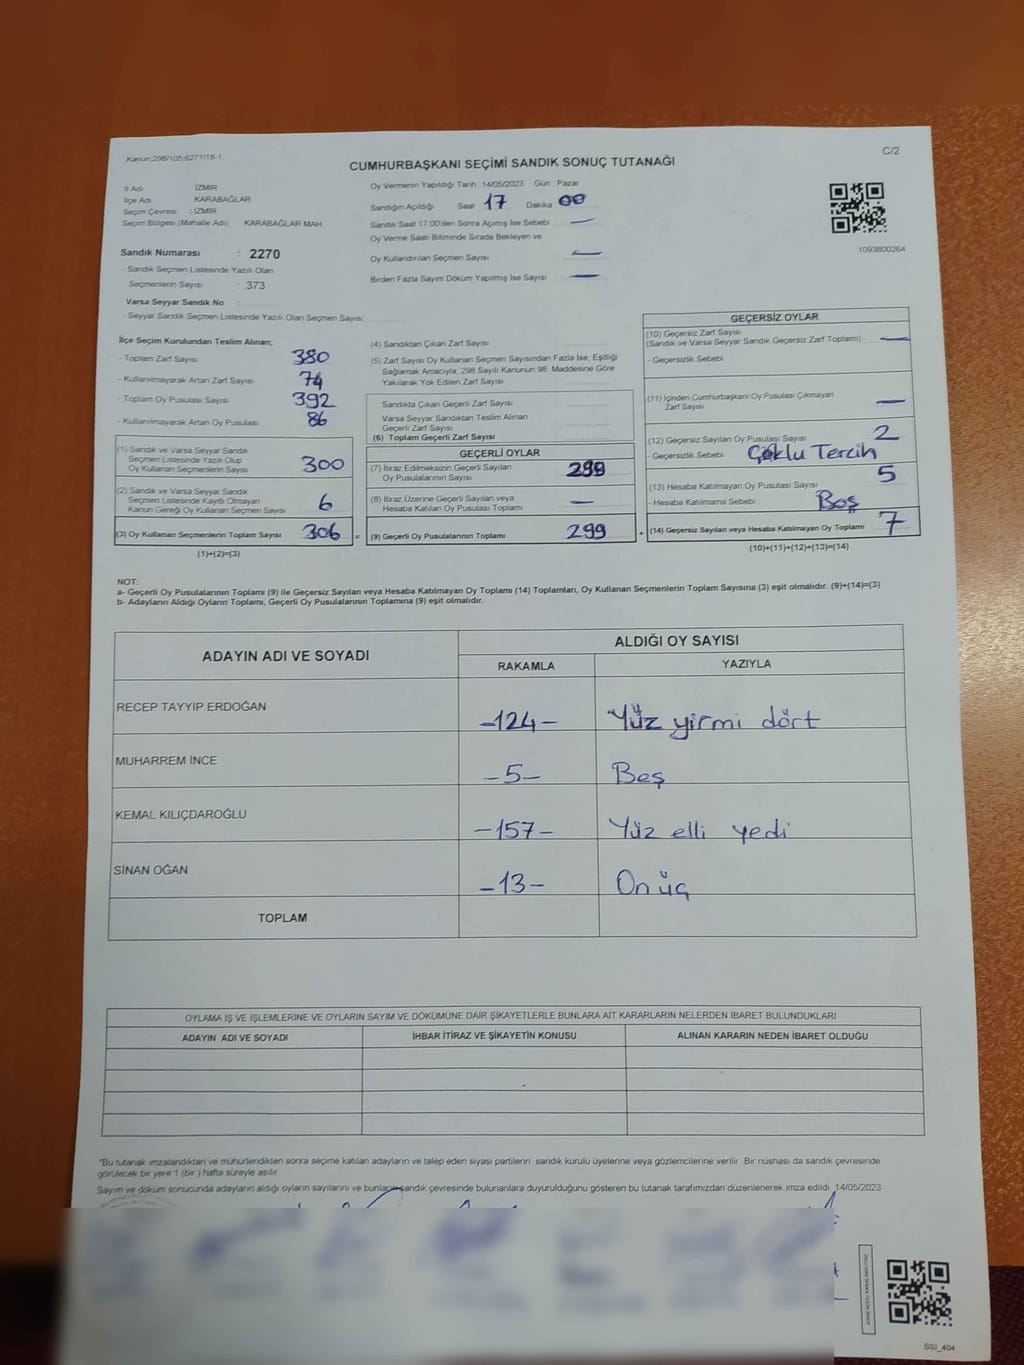 Kanun:298/105;6271/18-1
C/2
CUMHURBAŞKANI SEÇİMİ SANDIK SONUÇ TUTANAĞI
İl Adı İZMİR
İlçe Adı KARABAĞLAR
Seçim Çevresi : İZMİR
Seçim Bölgesi (Mahalle Adı) KARABAĞLAR MAH
Oy Vermenin Yapıldığı Tarih 14/05/2023 Gün Pazar
Sandığın Açıldığı Saat 17 Dakika 00
Sandık Saat 17:00'den Sonra Açılmış İse Sebebi —
Oy Verme Saati Bitiminde Sırada Bekleyen ve
Oy Kullandırılan Seçmen Sayısı —
Birden Fazla Sayım Döküm Yapılmış İse Sayısı —
1093800264
Sandık Numarası : 2270
- Sandık Seçmen Listesinde Yazılı Olan
Seçmenlerin Sayısı : 373
Varsa Seyyar Sandık No :
- Seyyar Sandık Seçmen Listesinde Yazılı Olan Seçmen Sayısı:
İlçe Seçim Kurulundan Teslim Alınan;
- Toplam Zarf Sayısı 380
- Kullanılmayarak Artan Zarf Sayısı 74
- Toplam Oy Pusulası Sayısı 392
- Kullanılmayarak Artan Oy Pusulası 86
(1) Sandık ve Varsa Seyyar Sandık
Seçmen Listesinde Yazılı Olup
Oy Kullanan Seçmenlerin Sayısı 300
(2) Sandık ve Varsa Seyyar Sandık
Seçmen Listesinde Kayıtlı Olmayan
Kanun Gereği Oy Kullanan Seçmen Sayısı 6
(3) Oy Kullanan Seçmenlerin Toplam Sayısı 306 =
(1)+(2)=(3)
(4) Sandıktan Çıkan Zarf Sayısı
(5) Zarf Sayısı Oy Kullanan Seçmen Sayısından Fazla İse, Eşitliği
Sağlamak Amacıyla; 298 Sayılı Kanunun 98. Maddesine Göre
Yakılarak Yok Edilen Zarf Sayısı
Sandıkta Çıkan Geçerli Zarf Sayısı
Varsa Seyyar Sandıktan Teslim Alınan
Geçerli Zarf Sayısı
(6) Toplam Geçerli Zarf Sayısı
GEÇERLİ OYLAR
(7) İtiraz Edilmeksizin Geçerli Sayılan
Oy Pusulası Sayısı 299
(8) İtiraz Üzerine Geçerli Sayılan veya
Hesaba Katılan Oy Pusulası Toplamı —
(9) Geçerli Oy Pusulalarının Toplamı 299 +
GEÇERSİZ OYLAR
(10) Geçersiz Zarf Sayısı
(Sandık ve Varsa Seyyar Sandık Geçersiz Zarf Toplamı) —
- Geçersizlik Sebebi
(11) İçinden Cumhurbaşkanı Oy Pusulası Çıkmayan
Zarf Sayısı —
(12) Geçersiz Sayılan Oy Pusulası Sayısı 2
- Geçersizlik Sebebi : Çoklu Tercih
(13) Hesaba Katılmayan Oy Pusulası Sayısı 5
- Hesaba Katılmama Sebebi : Boş
(14) Geçersiz Sayılan veya Hesaba Katılmayan Oy Toplamı 7
(10)+(11)+(12)+(13)=(14)
NOT:
a- Geçerli Oy Pusulalarının Toplamı (9) ile Geçersiz Sayılan veya Hesaba Katılmayan Oy Toplamı (14) Toplamları, Oy Kullanan Seçmenlerin Toplam Sayısına (3) eşit olmalıdır. (9)+(14)=(3)
b- Adayların Aldığı Oyların Toplamı, Geçerli Oy Pusulalarının Toplamına (9) eşit olmalıdır.
ADAYIN ADI VE SOYADI
ALDIĞI OY SAYISI
RAKAMLA YAZIYLA
RECEP TAYYİP ERDOĞAN -124- Yüz yirmi dört
MUHARREM İNCE -5- Beş
KEMAL KILIÇDAROĞLU -157- Yüz elli yedi
SİNAN OĞAN -13- On üç
TOPLAM
OYLAMA İŞ VE İŞLEMLERİNE VE OYLARIN SAYIM VE DÖKÜMÜNE DAİR ŞİKAYETLERLE BUNLARA AİT KARARLARIN NELERDEN İBARET BULUNDUKLARI
ADAYIN ADI VE SOYADI İHBAR İTİRAZ VE ŞİKAYETİN KONUSU ALINAN KARARIN NEDEN İBARET OLDUĞU
"Bu tutanak imzalandıktan ve mühürlendikten sonra seçime katılan adayların ve talep eden siyasi partilerin sandık kurulu üyelerine veya gözlemcilerine verilir. Bir nüshası da sandık çevresinde
görülecek bir yere 1 (bir ) hafta süreyle asılır
Sayım ve döküm sonucunda adayların aldığı oyların sayılarını ve bunların sandık çevresinde bulunanlara duyurulduğunu gösteren bu tutanak tarafımızdan düzenlenerek imza edildi. 14/05/2023
SSI_404